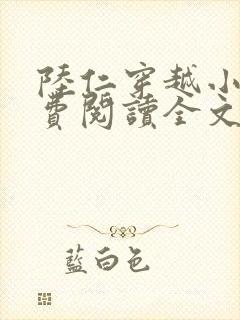 陸仁穿越小
費閱讀全文
藍白色